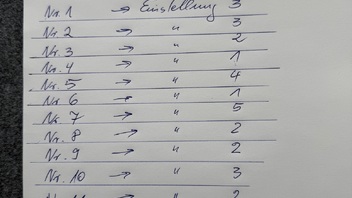 Nr. 1 → Einstellung 3
Nr. 2 → " 3
Nr. 3 → " 2
Nr. 4 → " 1
Nr. 5 → " 4
Nr. 6 → " 1
Nr. 7 → " 5
Nr. 8 → " 2
Nr. 9 → " 2
Nr. 10 → " 3
Nr. 11 → " 2